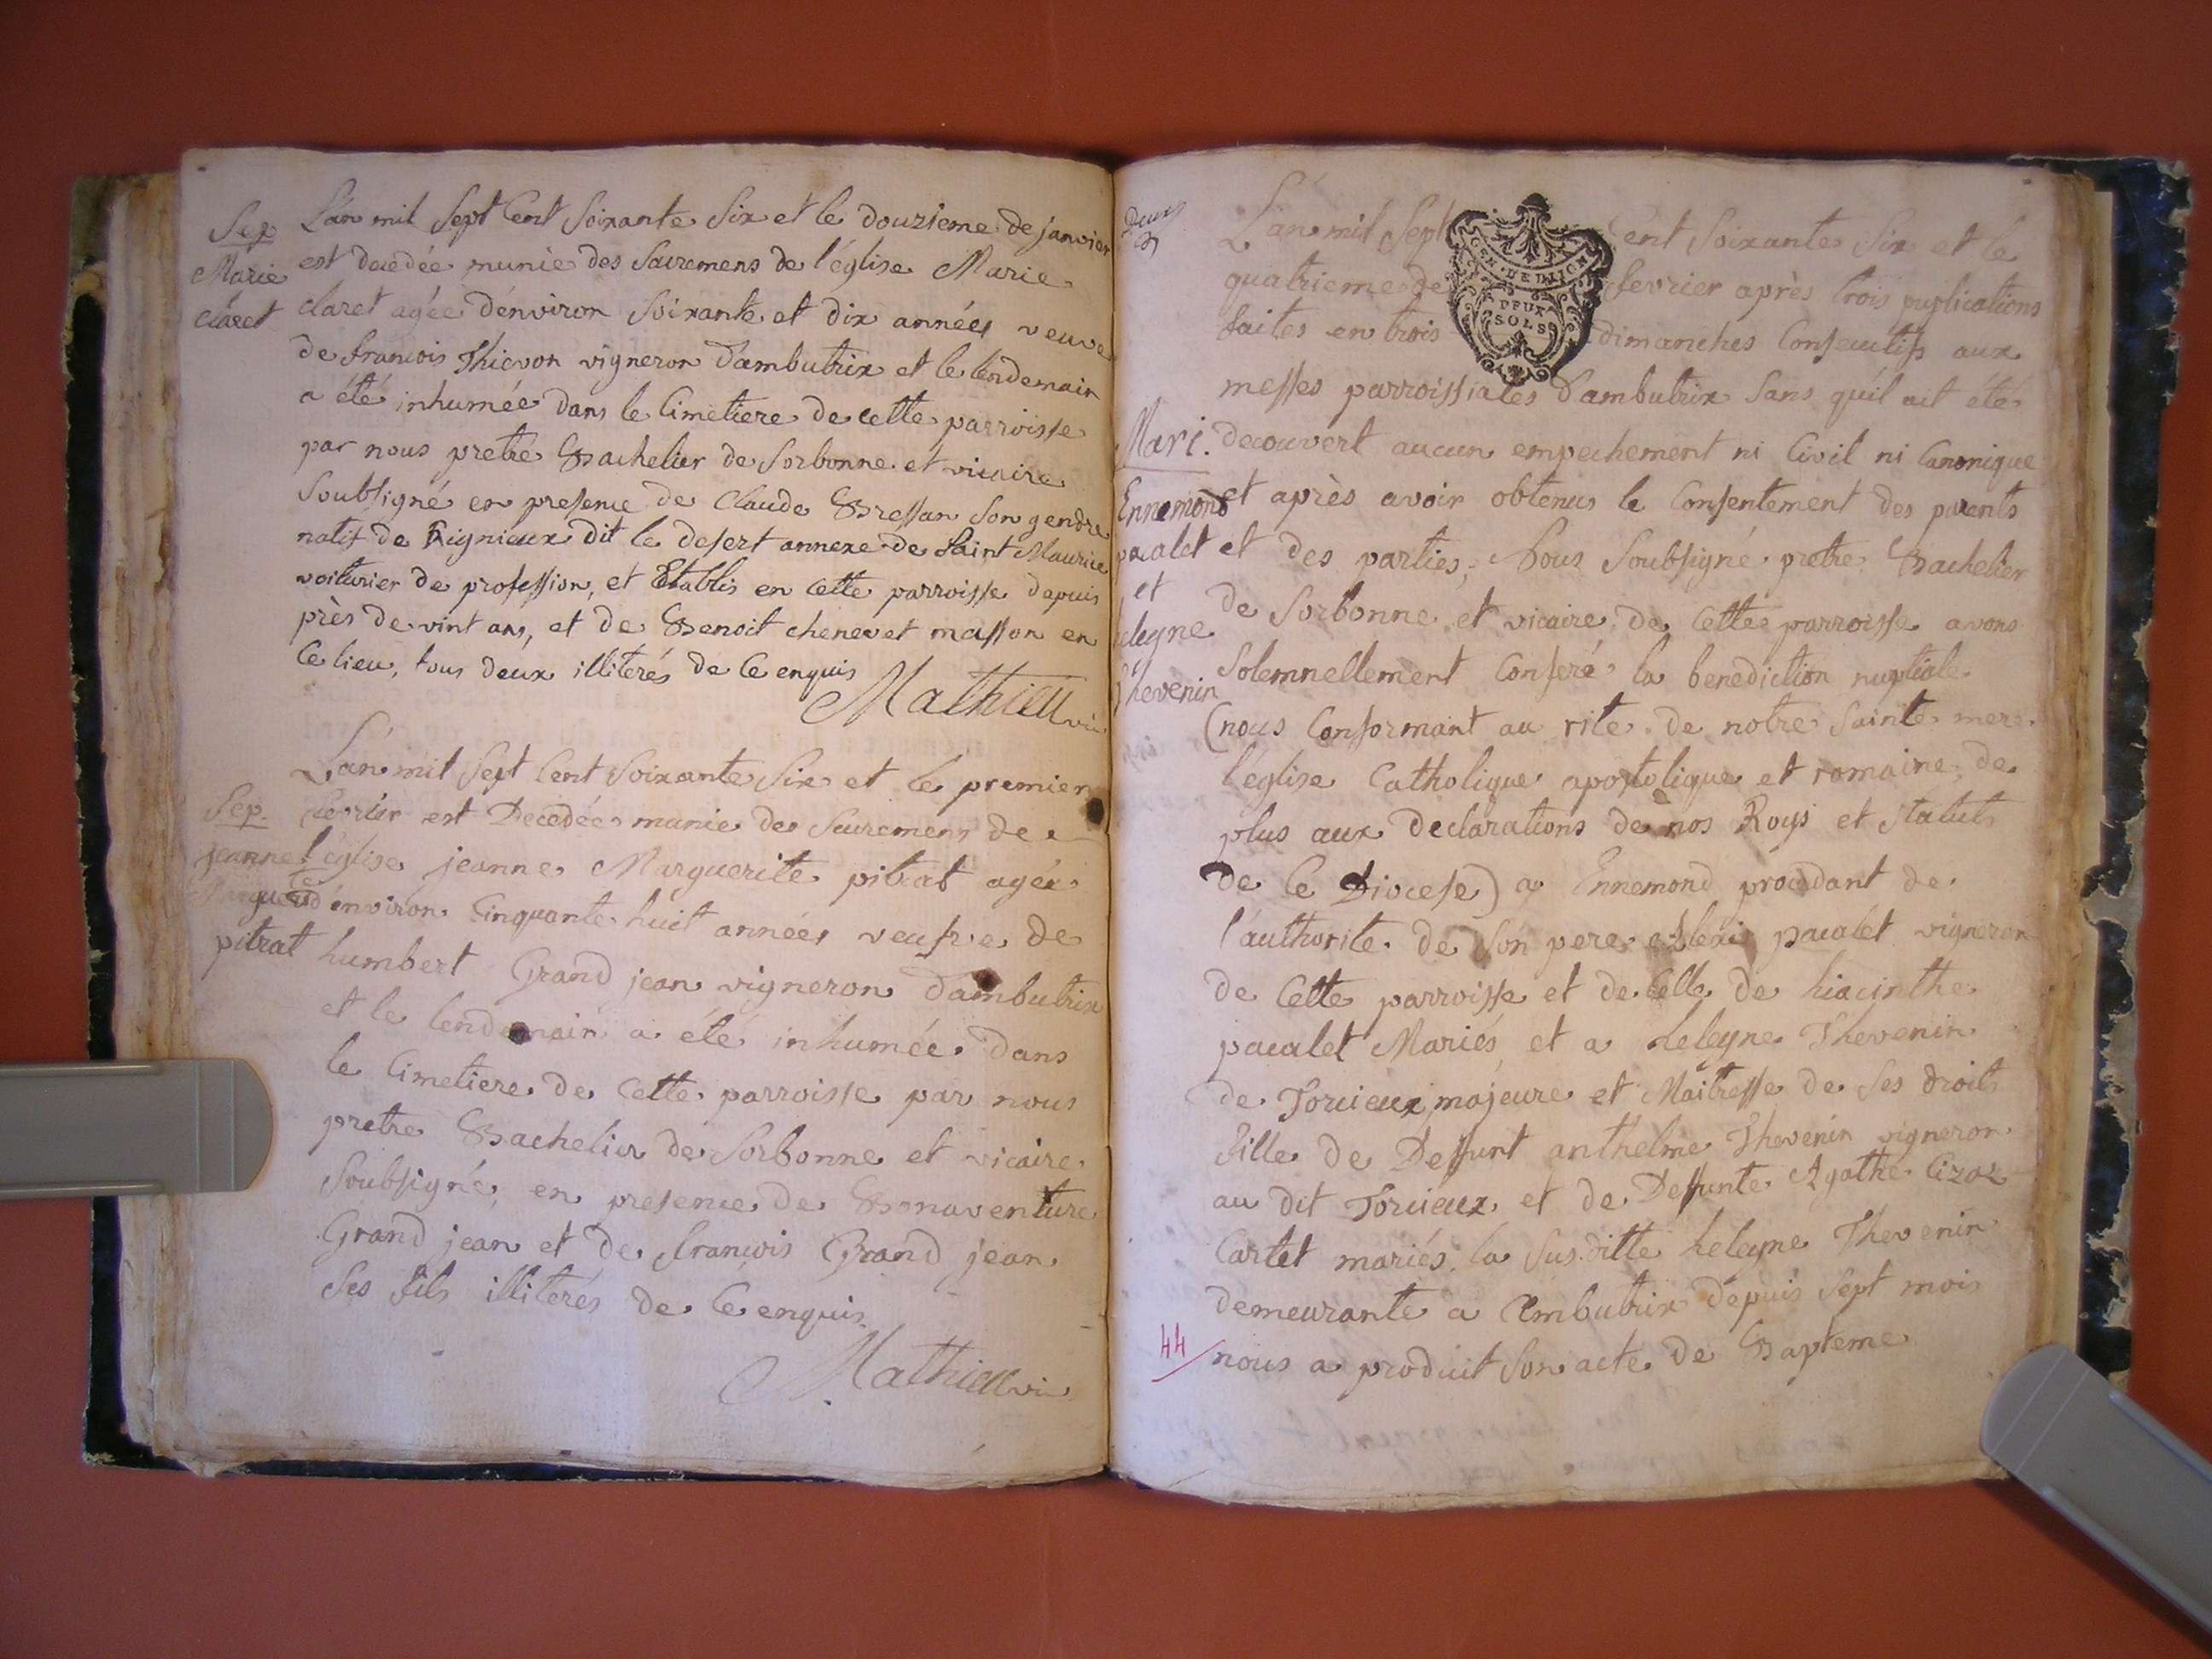 Sep.
Marie
claret
L'an mil Sept Cent Soixante Six et le douzieme de janvier
est decedée munie des Sacremens de l'église Marie
claret agée d'environ Soixante et dix années veuve
de francois Thievon vigneron d'ambutrix et le lendemain
a été inhumée dans le Cimetiere de cette parroisse
par nous pretre Bachelier de Sorbonne et vicaire
Soubsigné en presence de Claude Bressan Son gendre
natif de Rignieux dit le desert annexe de Saint Maurice
voiturier de profession, et Etablis en cette parroisse depuis
près de vint ans, et de Benoit chenevet masson en
Ce lieu, tous deux illiterés de Ce enquis
Mathieu vic
Sep.
jeanne
Marguerite
pitrat
L'an mil Sept Cent Soixante Six et le premier
fevrier est Decedée munie des Sacremens de
l'église jeanne Marguerite pitrat agée
d'environ Cinquante huit années veufve de
humbert Grand jean vigneron d'ambutrix
et le lendemain a été inhumée dans
le Cimetiere de Cette parroisse par nous
pretre Bachelier de Sorbonne et vicaire
Soubsigné en presence de Bonaventure
Grand jean et de francois Grand jean
Ses fils illiterés de Ce enquis
Mathieu vic
Deux
GEN. DE DIJON
DEUX
SOLS
L'an mil Sept Cent Soixante Six et le
quatrieme de fevrier après trois publications
faites en trois dimanches Consecutifs aux
messes parroissiales d'ambutrix Sans qu'il ait été
Mari.
Ennemond
pacalet
et
heleyne
Thevenin
decouvert aucun empechement ni Civil ni Canonique
et après avoir obtenus le Consentement des parents
et des parties; Nous Soubsigné pretre Bachelier
de Sorbonne et vicaire de Cette parroisse avons
Solemnellement Conferé la benediction nuptiale
(nous Conformant au rite de notre Sainte mere
l'eglise Catholique apostolique et romaine, de
plus aux declarations de nos Roys et Statuts
de Ce Diocese) a Ennemond procedant de
l'authorite de Son pere Alexis pacalet vigneron
de Cette parroisse et de Celle de hiacinthe
pacalet Mariés et a heleyne Thevenin
de Torcieux majeure et Maitresse de Ses droits
fille de Deffunt anthelme Thevenin vigneron
au dit Torcieux et de Deffunte Agathe Cizoz
Cartet mariés. la Sus.ditte heleyne Thevenin
demeurante a Ambutrix depuis Sept mois
nous a produit Son acte de Bapteme
44